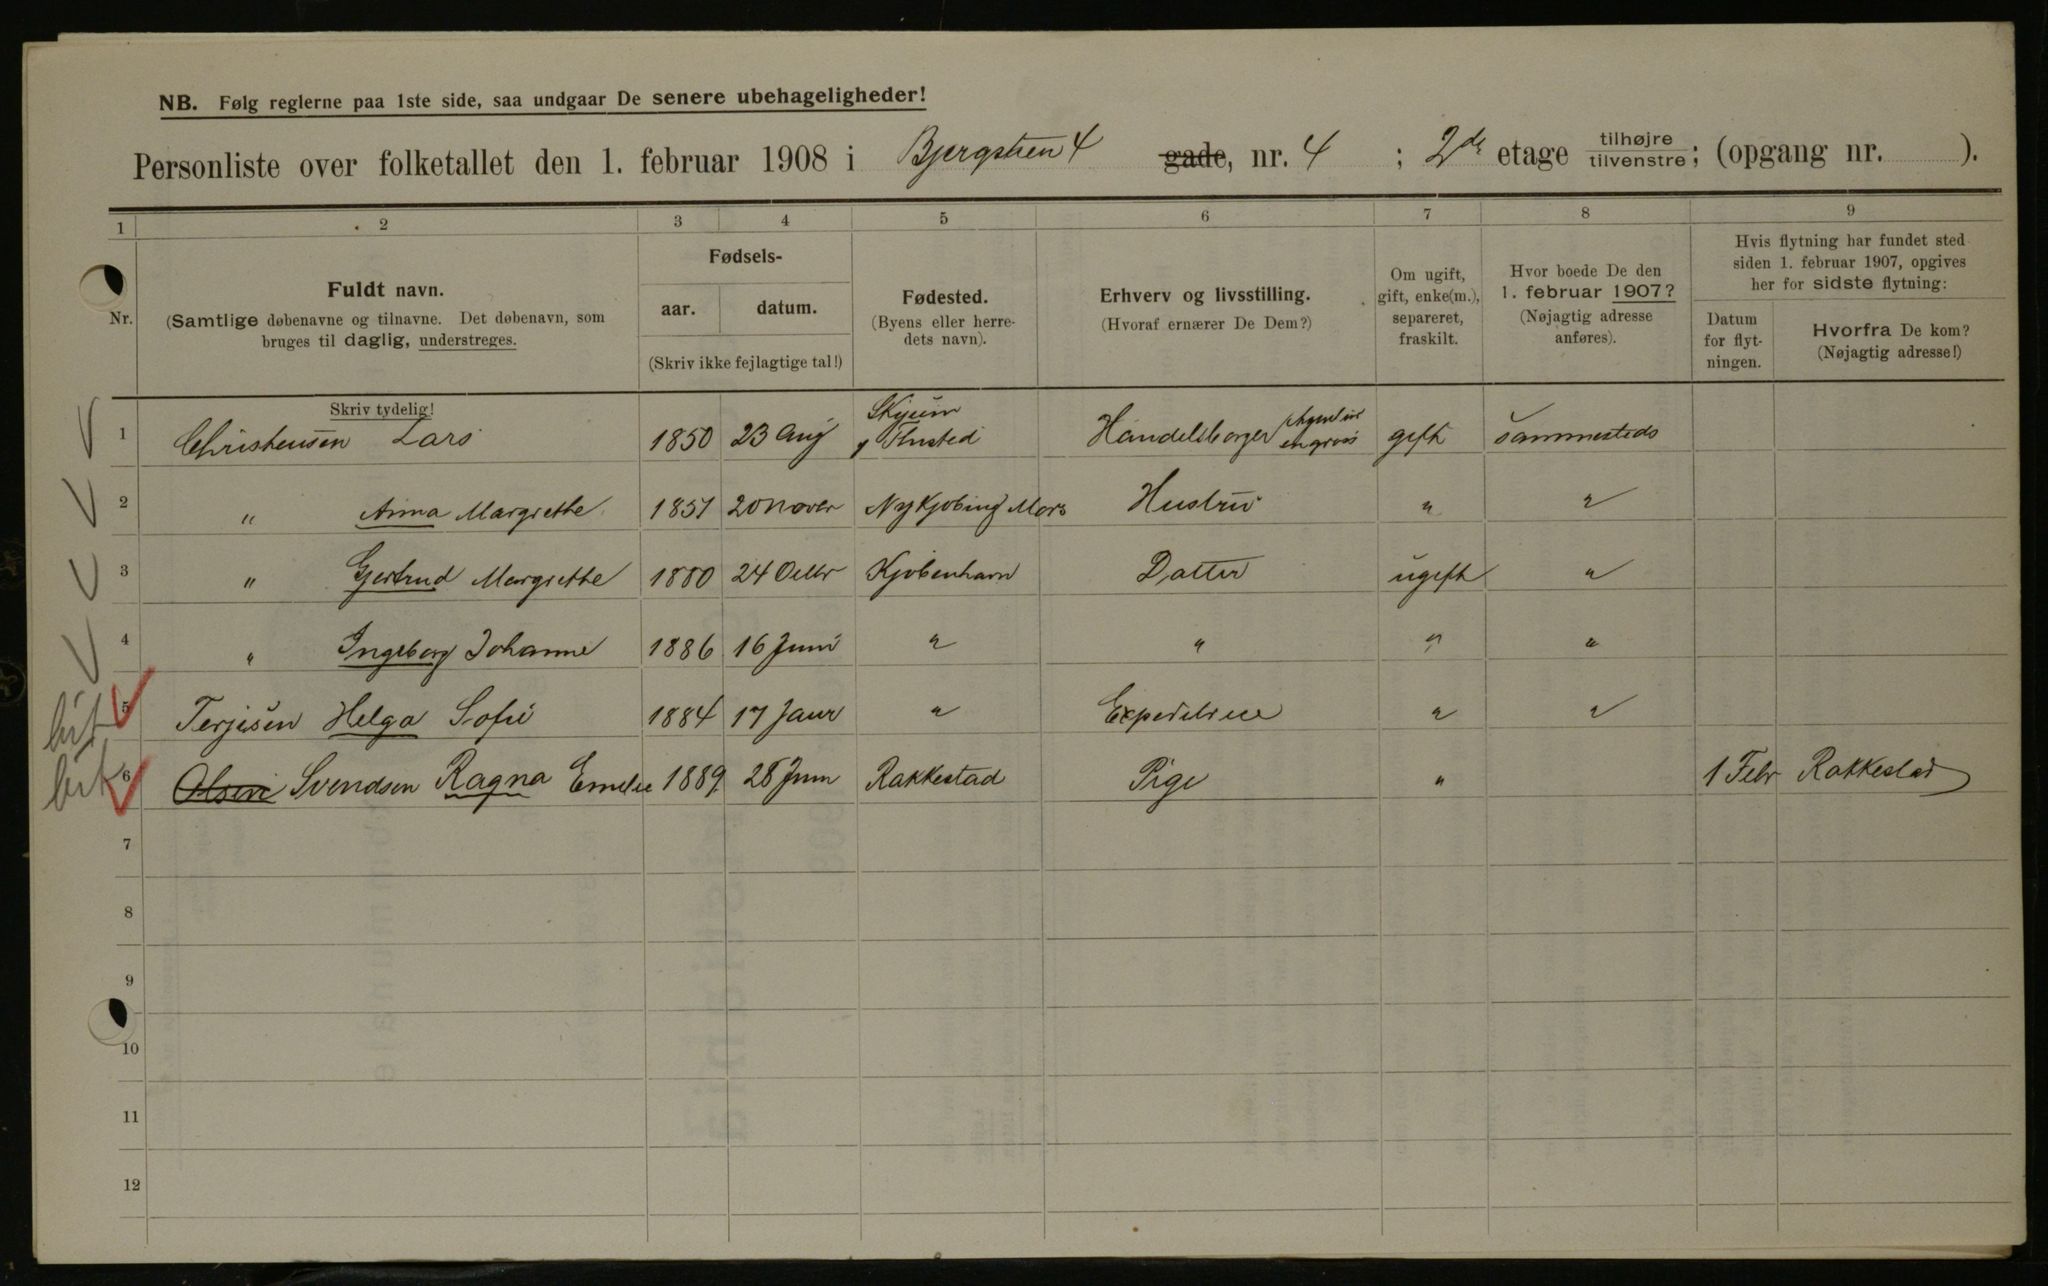 NB. Følg reglerne paa 1ste side, saa undgaar De senere ubehageligheder!
Personliste over folketallet den 1. februar 1908 i Bjergstien 4 gade, nr. 4 ; 2de etage tilhøjre tilvenstre; (opgang nr. ).
1 2 3 4 5 6 7 8 9
Nr.
Fuldt navn.
(Samtlige døbenavne og tilnavne. Det døbenavn, som
bruges til daglig, understreges.
Skriv tydelig!
Fødsels-
aar. datum.
(Skriv ikke fejlagtige tal!)
Fødested.
(Byens eller herre-
dets navn).
Erhverv og livsstilling.
(Hvoraf ernærer De Dem?)
Om ugift,
gift, enke(m.),
separeret,
fraskilt.
Hvor boede De den
1. februar 1907?
(Nøjagtig adresse
anføres).
Hvis flytning har fundet sted
siden 1. februar 1907, opgives
her for sidste flytning:
Datum
for flyt-
ningen.
Hvorfra De kom?
(Nøjagtig adresse!)
1 Christensen Lars 1850 23 Aug Skjum Handelsborger engros gift sammesteds
2 " Anna Margrethe 1851 20 Novbr Nykjobing Mors Hustru " "
3 " Gjertrud Margrethe 1880 24 Octbr Kjobenhavn Datter ugift "
4 " Ingeborg Johanne 1886 16 Juni " " " "
bit 5 Terjesen Helga Sofie 1884 17 Janr " Expeditrice " "
bit 6 Olsen Svendsen Ragna Emelie 1889 28 Juni Rakkestad Pige " 1 Febr Rakkestad
7
8
9
10
11
12